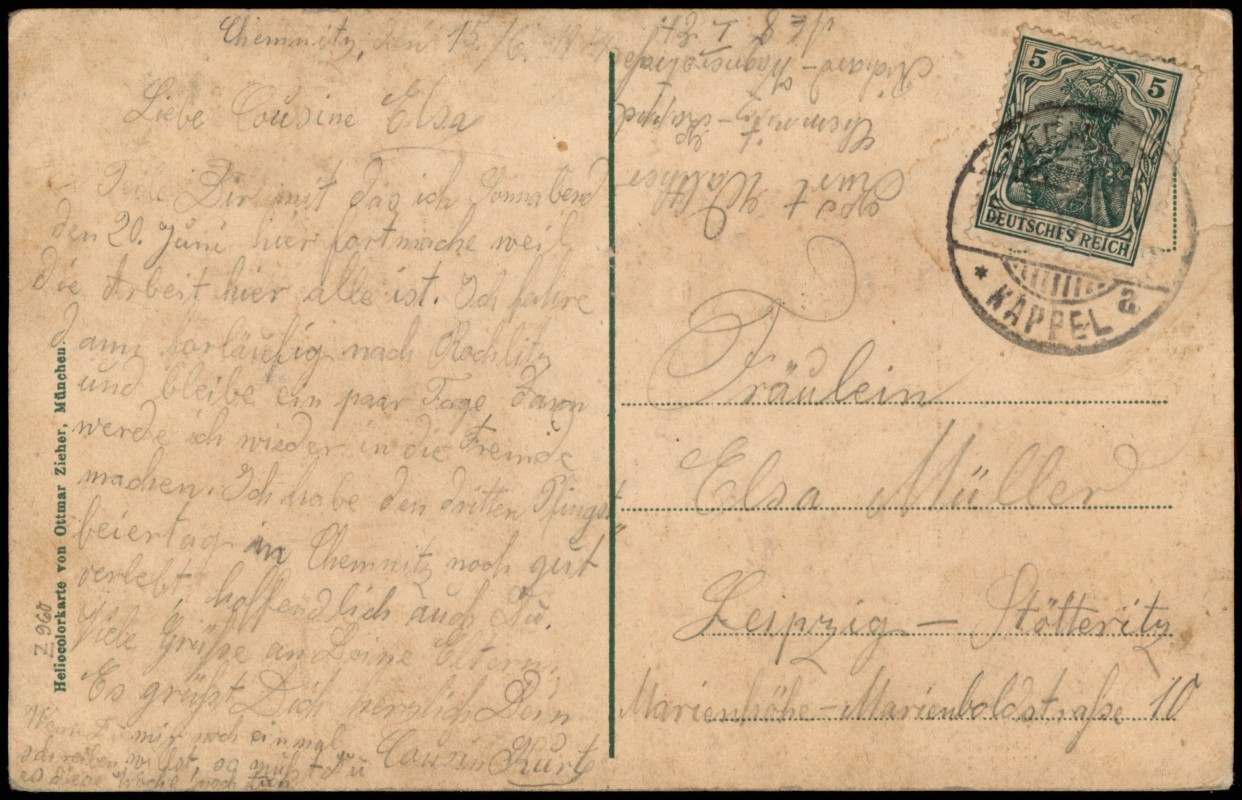 Chemnitz, den 15./6.
Liebe Cousine Elsa
Teile Dir mit das ich Sonnabend
den 20. Juni hier fortmache weil
die Arbeit hier alle ist. Ich fahre
dann forläufig nach Rochlitz
und bleibe ein paar Tage Dann
werde ich wieder in die Fremde
machen. Ich habe den dritten Pfingst
beiertag in Chemnitz noch gut
verlebt, hoffendlich auch Du.
Viele Grüße an Deine Eltern.
Es grüßt Dich herzlich Dein
Cousin Kurt
Wenn Du mir noch einmal
schreiben willst, so mußt du
es diese Woche noch tun
Kurt Walther
Chemnitz-Kappel
Richard-Wagnerstraße
Fräulein
Elsa Müller
Leipzig – Stötteritz
Marienhöhe-Marienboldstraße 10
5 5
DEUTSCHES REICH
* KAPPEL a
Z 960
Heliocolorkarte von Ottmar Zieher, München.